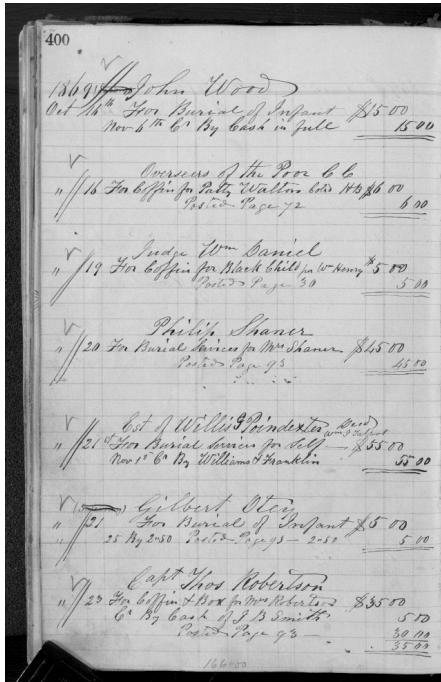 400
1869 John Wood
Oct 16th For Burial of Infant $15 00
Nov 6th Cr By Cash in full 15 00
Overseers of the Poor C C
" 16 For Coffin for Walton $6 00
Posted Page 72 6 00
Judge Wm Daniel
" 19 For Coffin for Black Child for Wm Henry $5 00
Posted Page 30 5 00
Philip Shaner
" 20 For Burial Services for Mrs Shaner $45 00
Posted Page 93 45 00
Est of Willis G Poindexter Decd
" 21st For Burial Services for Self — $55 00
Nov 1st Cr By Williams & Franklin 55 00
Gilbert Otey
" 21 For Burial of Infant $5 00
25 By 2.50 Posted Page 93 — 2.50 5 00
Capt Thos Robertson
" 23 For Coffin & Box for Mrs Robertson $35 00
Cr By Cash of J B Smith 5 00
Posted Page 93 — 30 00
35 00
166.00